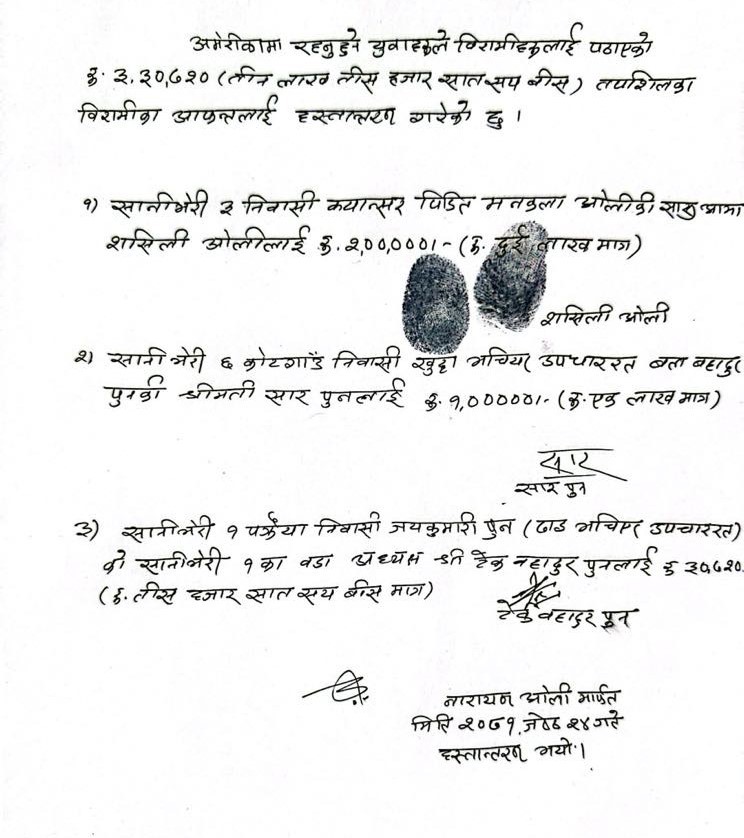 अमेरिकामा रहनुहुने युवाहरूले विरामीहरूलाई पठाएको
रु. ३,३०,७२० (तीन लाख तीस हजार सात सय बीस) तपशिलका
विरामीका आफन्तलाई हस्तान्तरण गरेको छु ।
१) सानीभेरी ३ निवासी क्यान्सर पिडित मनकला ओलीकी सासु आमा
शसिली ओलीलाई रु. २,००,०००।- (रु. दुई लाख मात्र)
शसिली ओली
२) सानीभेरी ६ कोटगाउँ निवासी खुट्टा भाचिएर उपचाररत बता बहादुर
पुनकी श्रीमती सार पुनलाई रु. १,०००००।- (रु. एक लाख मात्र)
सार
सार पुन
३) सानीभेरी १ निवासी जयकुमारी पुन (ढाड भाचिएर उपचाररत)
को सानीभेरी १ का वडा अध्यक्ष श्री टेक बहादुर पुनलाई रु ३०,७२०
(रु. तीस हजार सात सय बीस मात्र)
टेक बहादुर पुन
नारायण ओली मार्फत
मिति २०८१, जेठ २४ गते
हस्तान्तरण गर्यो ।